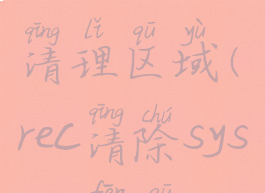 qīng lǐ qū yù
清理区域(
qīng chú
rec清除sys
fēn qū